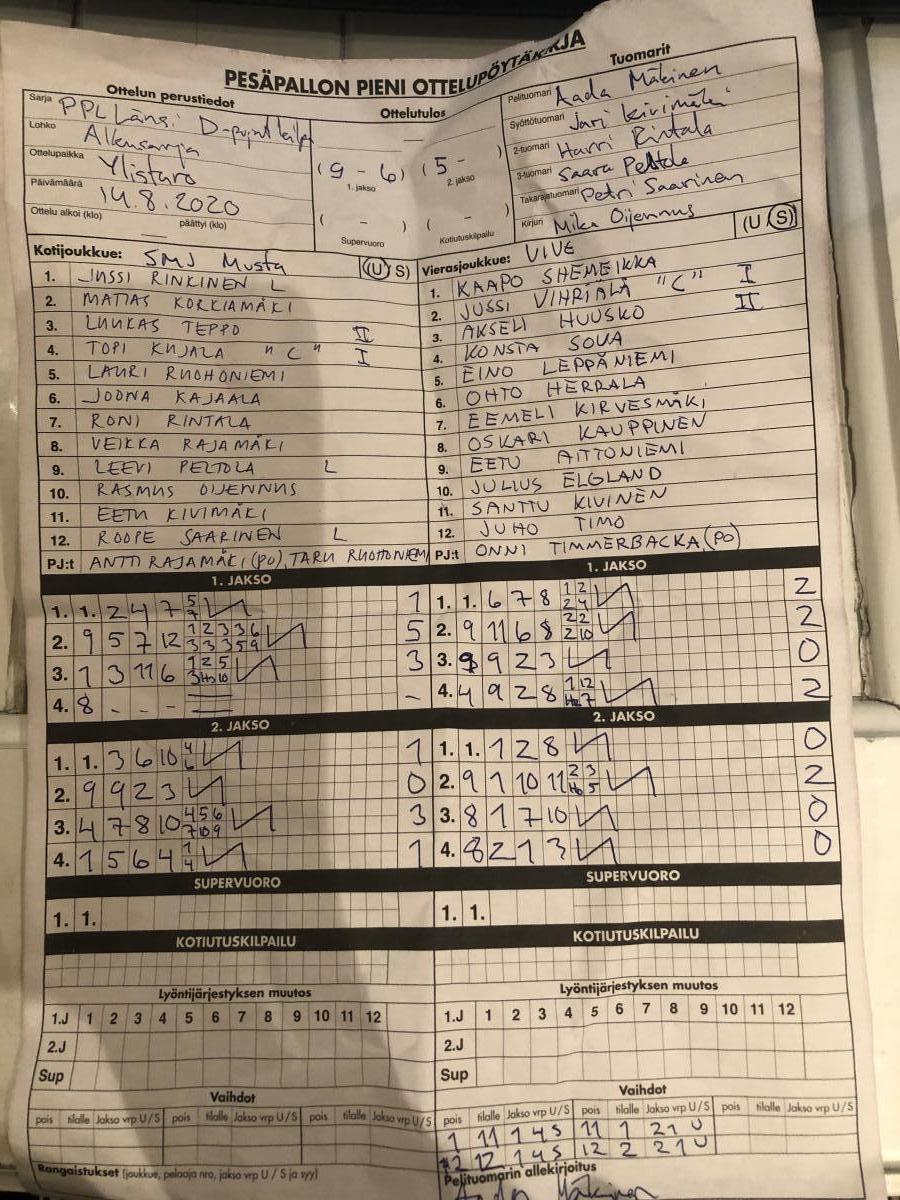 PESÄPALLON PIENI OTTELUPÖYTÄKIRJA
Ottelun perustiedot
Sarja PPL Länsi D-pojat
Lohko Alkusarja
Ottelupaikka Ylistaro
Päivämäärä 14.8.2020
Ottelu alkoi (klo) päättyi (klo)
Ottelutulos
(9 - 6) (5 - )
1. jakso 2. jakso
( - ) ( - )
Supervuoro Kotiutuskilpailu
Tuomarit
Pelituomari Aada Mäkinen
Syöttötuomari Jari Kivimäki
2-tuomari Harri Rintala
3-tuomari Saara Peltola
Takarajatuomari Petri Saarinen
Kirjuri Mika Oijennus
Kotijoukkue: SMJ Musta (U S)
1. JUSSI RINKINEN L
2. MATIAS KORKIAMÄKI
3. LUUKAS TEPPO II
4. TOPI KUJALA "C" I
5. LAURI RUOHONIEMI
6. JOONA KAJAALA
7. RONI RINTALA
8. VEIKKA RAJAMÄKI
9. LEEVI PELTOLA L
10. RASMUS OIJENNUS
11. EETU KIVIMÄKI
12. ROOPE SAARINEN L
PJ:t ANTTI RAJAMÄKI (PO), TARU RUOHONIEMI
Vierasjoukkue: VIVE (U S)
1. KAAPO SHEMEIKKA
2. JUSSI VIHRIÄLÄ "C" I
3. AKSELI HUUSKO II
4. KONSTA SOVA
5. EINO LEPPÄNIEMI
6. OHTO HERRALA
7. EEMELI KIRVESMÄKI
8. OSKARI KAUPPINEN
9. EETU AITTONIEMI
10. JULIUS ELGLAND
11. SANTTU KIVINEN
12. JUHO TIMO
PJ:t ONNI TIMMERBACKA (PO)
1. JAKSO
1. 1. 2 4 7 5 7 1
2. 9 5 7 12 1 2 3 3 6 3 3 3 5 9 5
3. 1 3 11 6 1 2 5 3 Ho 10 3
4. 8 - - - -
2. JAKSO
1. 1. 3 6 10 4 6 1
2. 9 9 2 3 0
3. 4 7 8 10 4 5 6 7 10 9 3
4. 1 5 6 4 1 4 1
SUPERVUORO
1. 1.
KOTIUTUSKILPAILU
Lyöntijärjestyksen muutos
1.J 1 2 3 4 5 6 7 8 9 10 11 12
2.J
Sup
Vaihdot
pois tilalle Jakso vrp U/S pois tilalle Jakso vrp U/S pois tilalle Jakso vrp U/S
Rangaistukset (joukkue, pelaaja nro, jakso vrp U / S ja syy)
1. JAKSO
1. 1. 6 7 8 1 2 2 4 2
2. 9 11 6 8 2 2 2 10 2
3. 9 9 2 3 0
4. 4 9 2 8 1 12 7 2
2. JAKSO
1. 1. 1 2 8 0
2. 9 1 10 11 2 3 Ho 5 2
3. 8 1 7 10 0
4. 8 2 1 3 0
SUPERVUORO
1. 1.
KOTIUTUSKILPAILU
Lyöntijärjestyksen muutos
1.J 1 2 3 4 5 6 7 8 9 10 11 12
2.J
Sup
Vaihdot
pois tilalle Jakso vrp U/S pois tilalle Jakso vrp U/S pois tilalle Jakso vrp U/S
1 11 1 4 S 11 1 2 1 U
2 12 1 4 S 12 2 2 1 U
Pelituomarin allekirjoitus
Aada Mäkinen